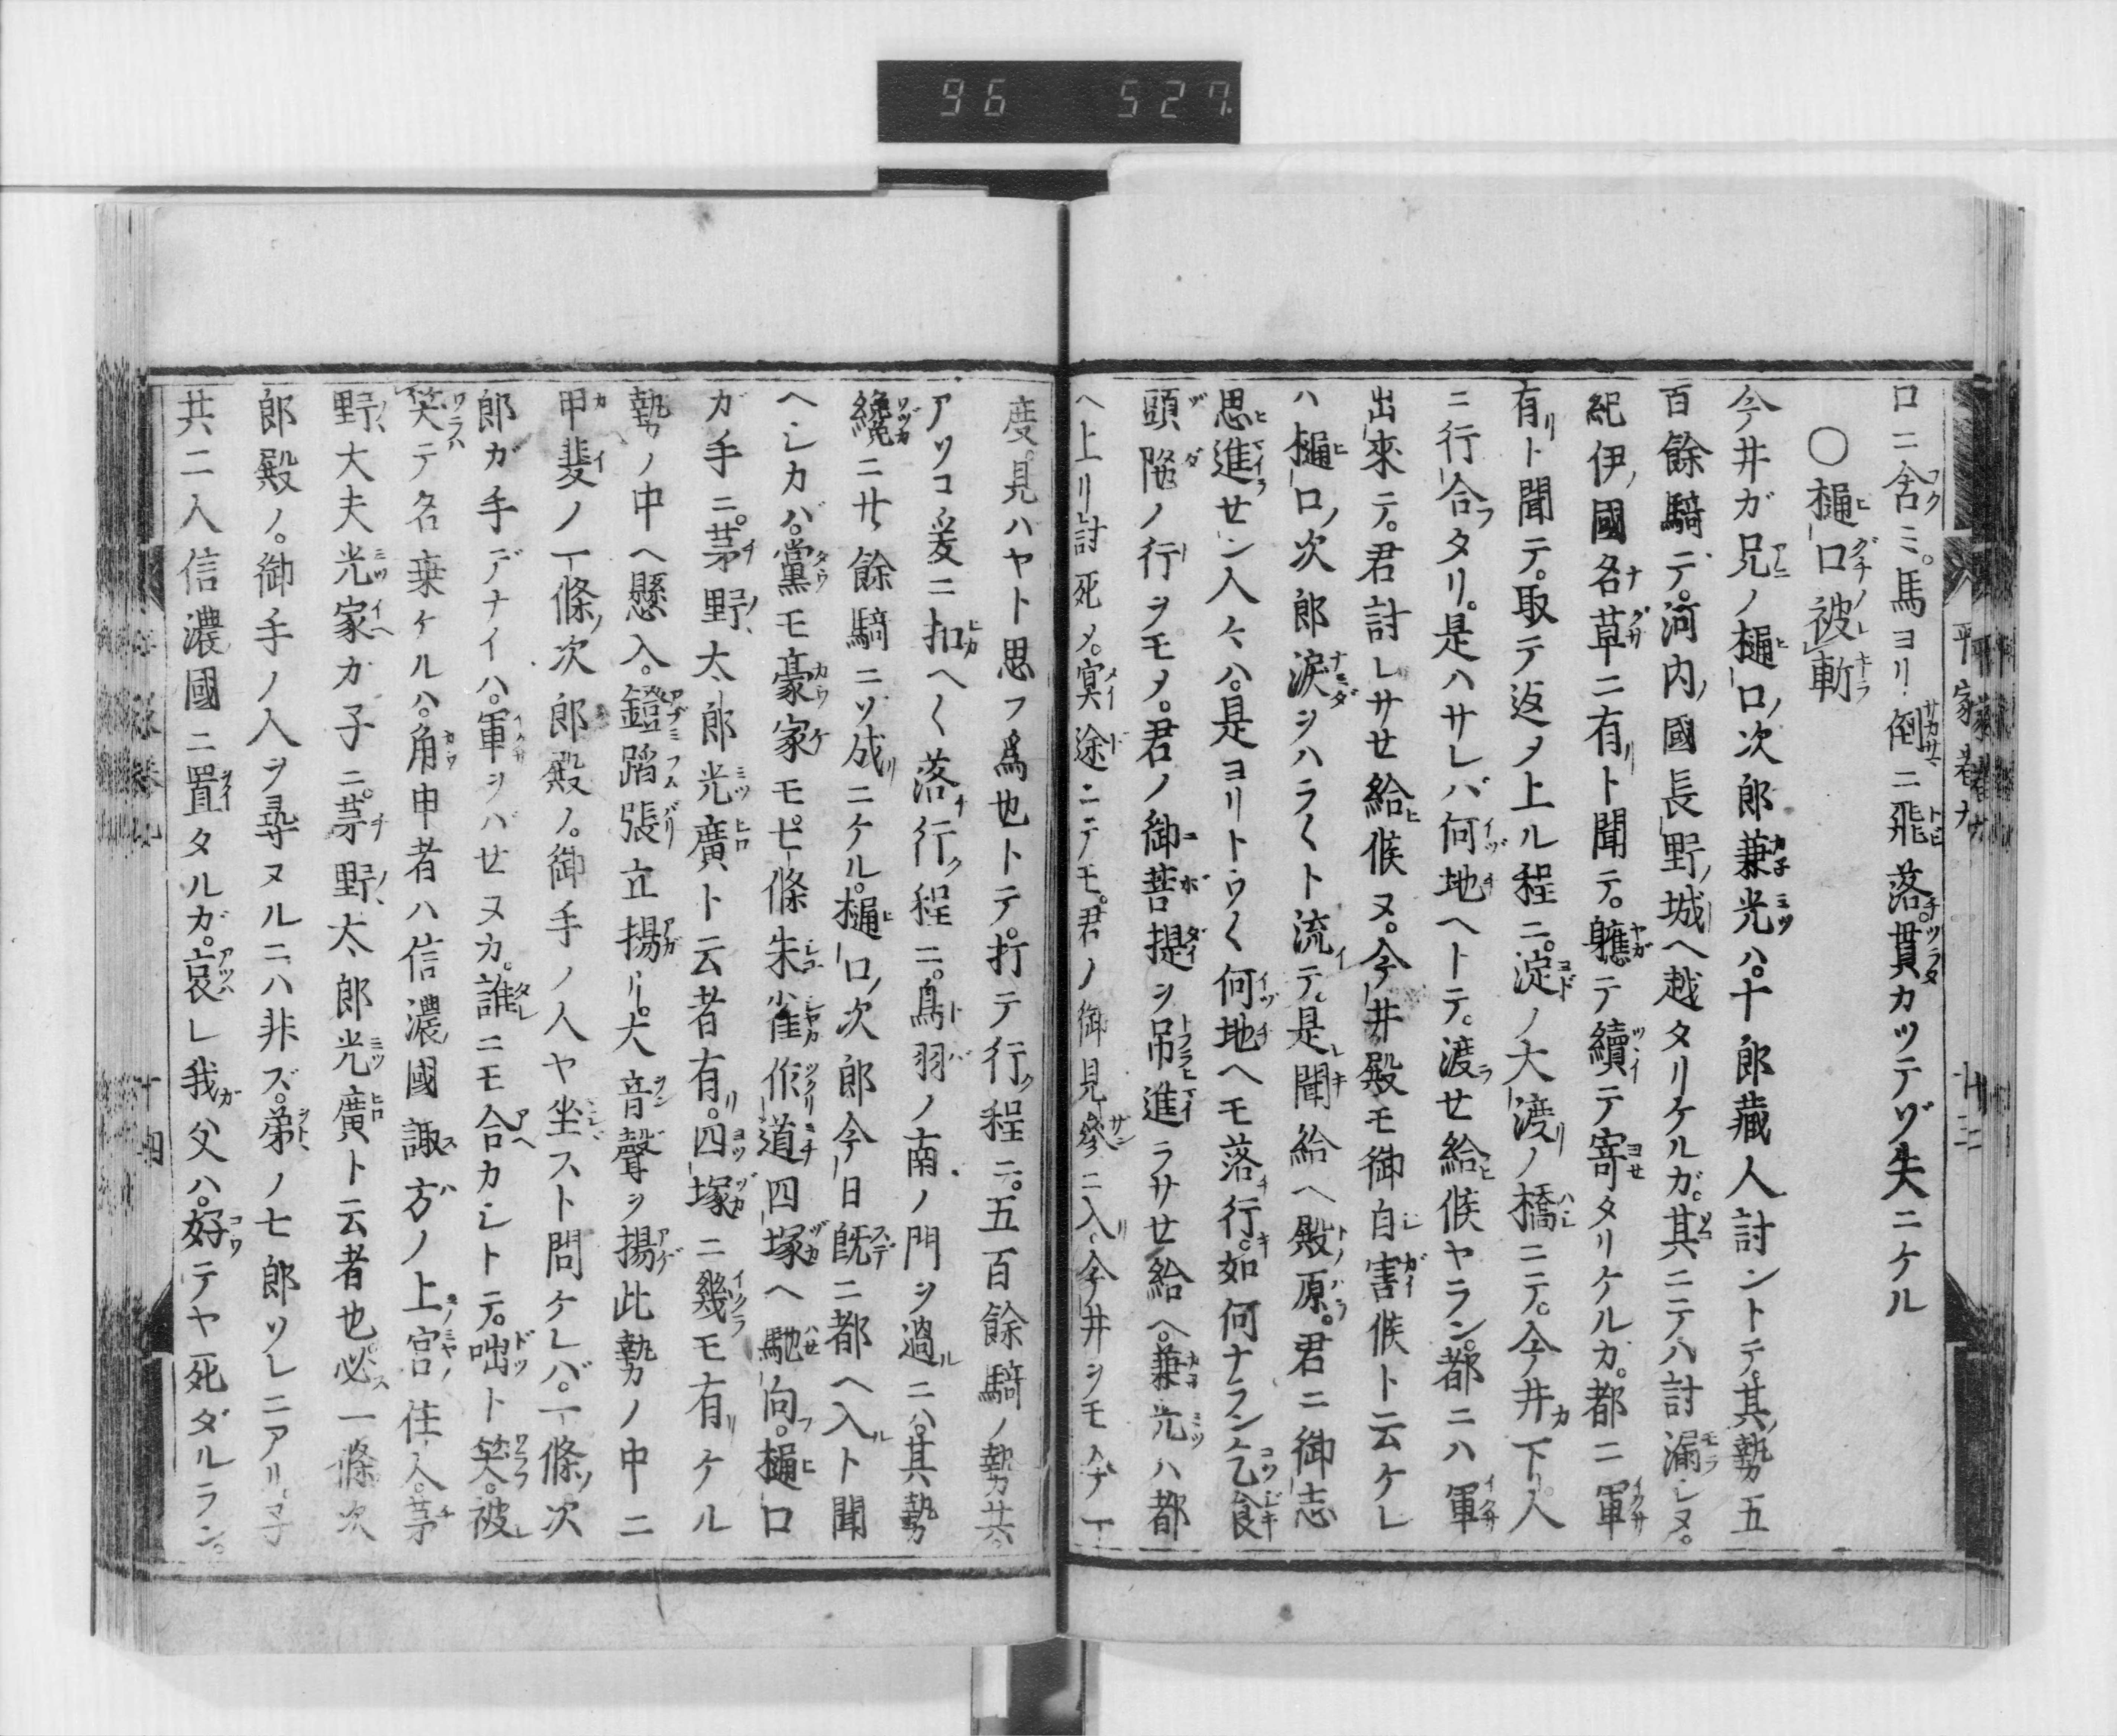 96 527
口ニ含ミ。馬ヨリ倒ニ飛落。貫カツテゾ失ニケル
〇樋口被斬
今井ガ兄ノ樋口ノ次郎兼光ハ。十郎藏人討ントテ。其勢五
百餘騎デ。河内ノ國長野ノ城ヘ越タリケルガ。其ニテハ討漏シヌ。
紀伊ノ國名草ニ有ト聞テ。軈テ續テ寄タリケルカ。都ニ軍
有ト聞テ。取テ返メ上ル程ニ。淀ノ大渡ノ橋ニテ。今井カ下人
ニ行合タリ。是ハサレバ何地ヘトテ。渡セ給候ヤラン。都ニハ軍
出來テ。君討レサセ給候ヌ。今井殿モ御自害候ト云ケレ
ハ樋口ノ次郎涙ヲハラ〱ト流テ。是聞給ヘ殿原。君ニ御志
思進セン人々ハ。是ヨリトウ〱何地ヘモ落行。如何ナラン乞食
頭陀ノ行ヲモメ。君ノ御菩提ヲ吊進ラサセ給ヘ。兼光ハ都
ヘ上リ討死メ。冥途ニテモ。君ノ御見參ニ入。今井ヲモ今一
度。見ハヤト思フ爲也トテ。打テ行程ニ。五百餘騎ノ勢共。
アソコ爰ニ扣ヘ〱落行程ニ。鳥羽ノ南ノ門ヲ過ニハ。其勢
纔ニ廿餘騎ニソ成ニケル。樋口ノ次郎今日既ニ都ヘ入ト聞
ヘシカバ。黨モ豪家モ。七條朱雀作道四塚ヘ馳向。樋口
ガ手ニ。茅野ノ太郎光廣ト云者有。四塚ニ幾モ有ケル
勢ノ中ヘ懸入。鐙蹈張立揚リ。大音聲ヲ揚此勢ノ中ニ
甲斐ノ一條ノ次郎殿ノ。御手ノ人ヤ坐スト問ケレバ。一條ノ次
郎ガ手デナイハ。軍ヲバせヌカ。誰ニモ合カシトテ。咄ト笑。被
笑テ名乗ケルハ。角申者ハ信濃國諏方ノ上宮住人。茅
野ノ大夫光家カ子ニ。茅野ノ太郎光廣ト云者也。必一條次
郎殿ノ。御手ノ人ヲ尋ヌルニハ非ズ。弟ノ七郎ソレニアリ。子
共二人信濃國ニ置タルガ。哀レ我父ハ。好テヤ死ダルラン。